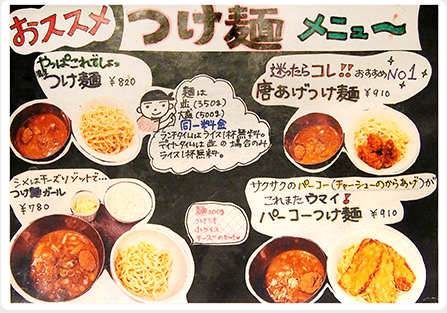 おススメ つけ麺 メニュ〜
やっぱこれでしょ
つけ麺 ¥820
麺は
並(350g)
大盛(500g)
同一料金
ランチタイムはライス1杯無料。
ナイトタイムは並の場合のみ
ライス1杯無料。
迷ったらコレ!! おすすめNo1
唐あげつけ麺 ¥910
シメはチーズリゾットで…
つけ麺ガール
¥780
麺200g
つけダレ
小ライス
サクサクのパーコー(チャーシューのからあげ)が
これまたウマイ!
パーコーつけ麺 ¥910